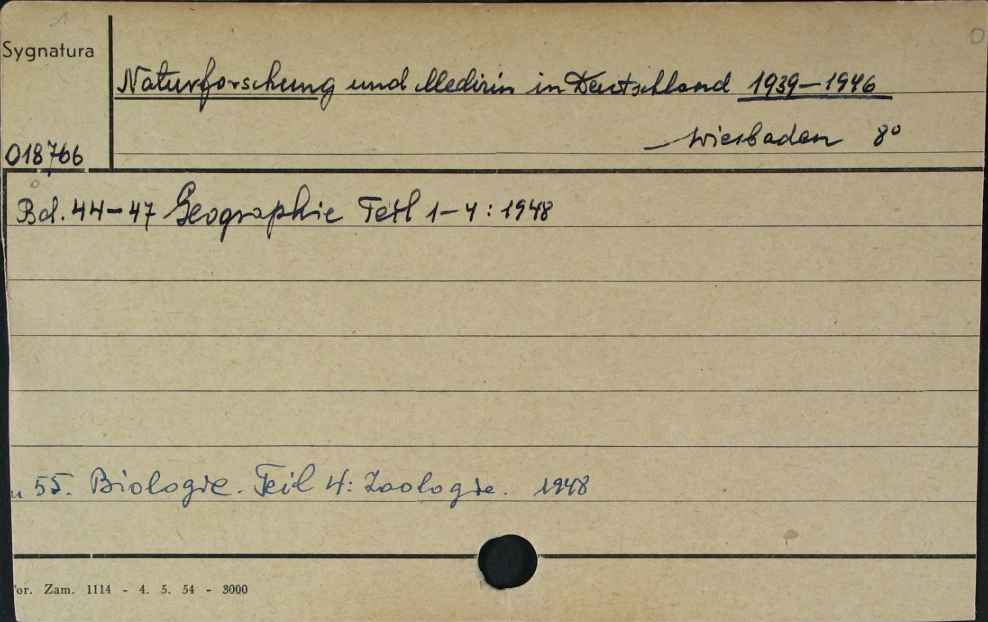 Sygnatura
Naturforschung und Medizin in Deutschland 1939-1946
018766
Wiesbaden 8°
Bd. 44-47 Geographie Teil 1-4: 1948
55. Biologie. Teil 4: Zoologie. 1948
or. Zam. 1114 - 4. 5. 54 - 3000